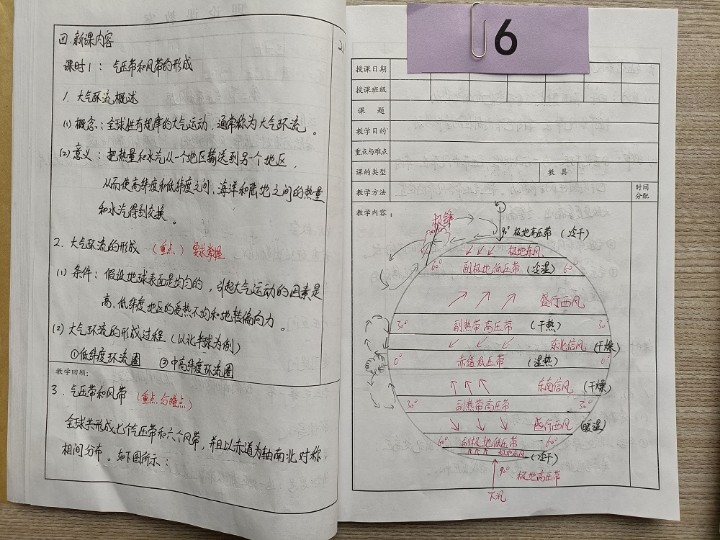 四. 新课内容
课时1: 气压带和风带的形成
1. 大气环流概述
(1) 概念: 全球性有规律的大气运动, 通常称为大气环流。
(2) 意义: 把热量和水汽从一个地区输送到另一个地区.
从而使高纬度和低纬度之间, 海洋和陆地之间的热量
和水汽得到交换。
2. 大气环流的形成 (重点)
(1) 条件: 假设地球表面是均匀的, 引起大气运动的因素是
高、低纬度地区的受热不均和地转偏向力。
(2) 大气环流的形成过程 (以北半球为例)
①低纬度环流圈 ②中高纬度环流圈
教学回顾:
3. 气压带和风带 (重点与难点)
全球共形成七个气压带和六个风带, 并且以赤道为轴南北对称,
相间分布。如下图所示:
6
授课日期
授课班级
课 题
教学目的
重点与难点
课的类型 教 具
教学方法 时间分配
教学内容:
90° 极地高压带 (冷干)
极地东风
60° 副极地低压带 (冷湿) 60°
盛行西风
30° 副热带高压带 (干热) 30°
东北信风 (干燥)
0° 赤道低压带 (湿热) 0°
东南信风 (干燥)
30° 副热带高压带 30°
盛行西风 (暖湿)
60° 副极地低压带 60°
极地东风 (冷干)
90° 极地高压带